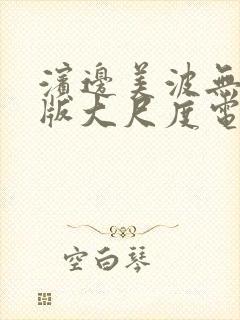 濱邊美波無
版大尺度電
空白琴